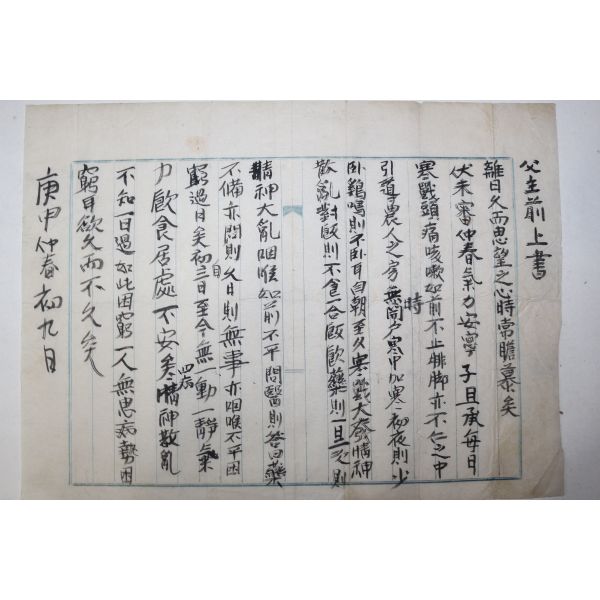 父主前上書
離日久而思望之心時常瞻慕矣
伏未審仲春氣力安寧 子旦承每日
寒戰頭痛咳嗽如前不止腓脚亦不仁之中
引導農人之旁無間戶寒甲加寒初夜則少時
臥鷄鳴則不臥耳自朝至久寒戰大發精神
散亂對飯則不食一合飯飲藥則一旦
精神大亂咽喉如前不平問醫則答曰藥
不備亦悶則久日則無事亦咽喉不平困
窮過日矣初三日至今無一動一靜氣自
力飲食居處不安矣精神散亂
不知一日過如此困窮一人無患病勢困
窮耳欲久而不久矣
庚申仲春初九日